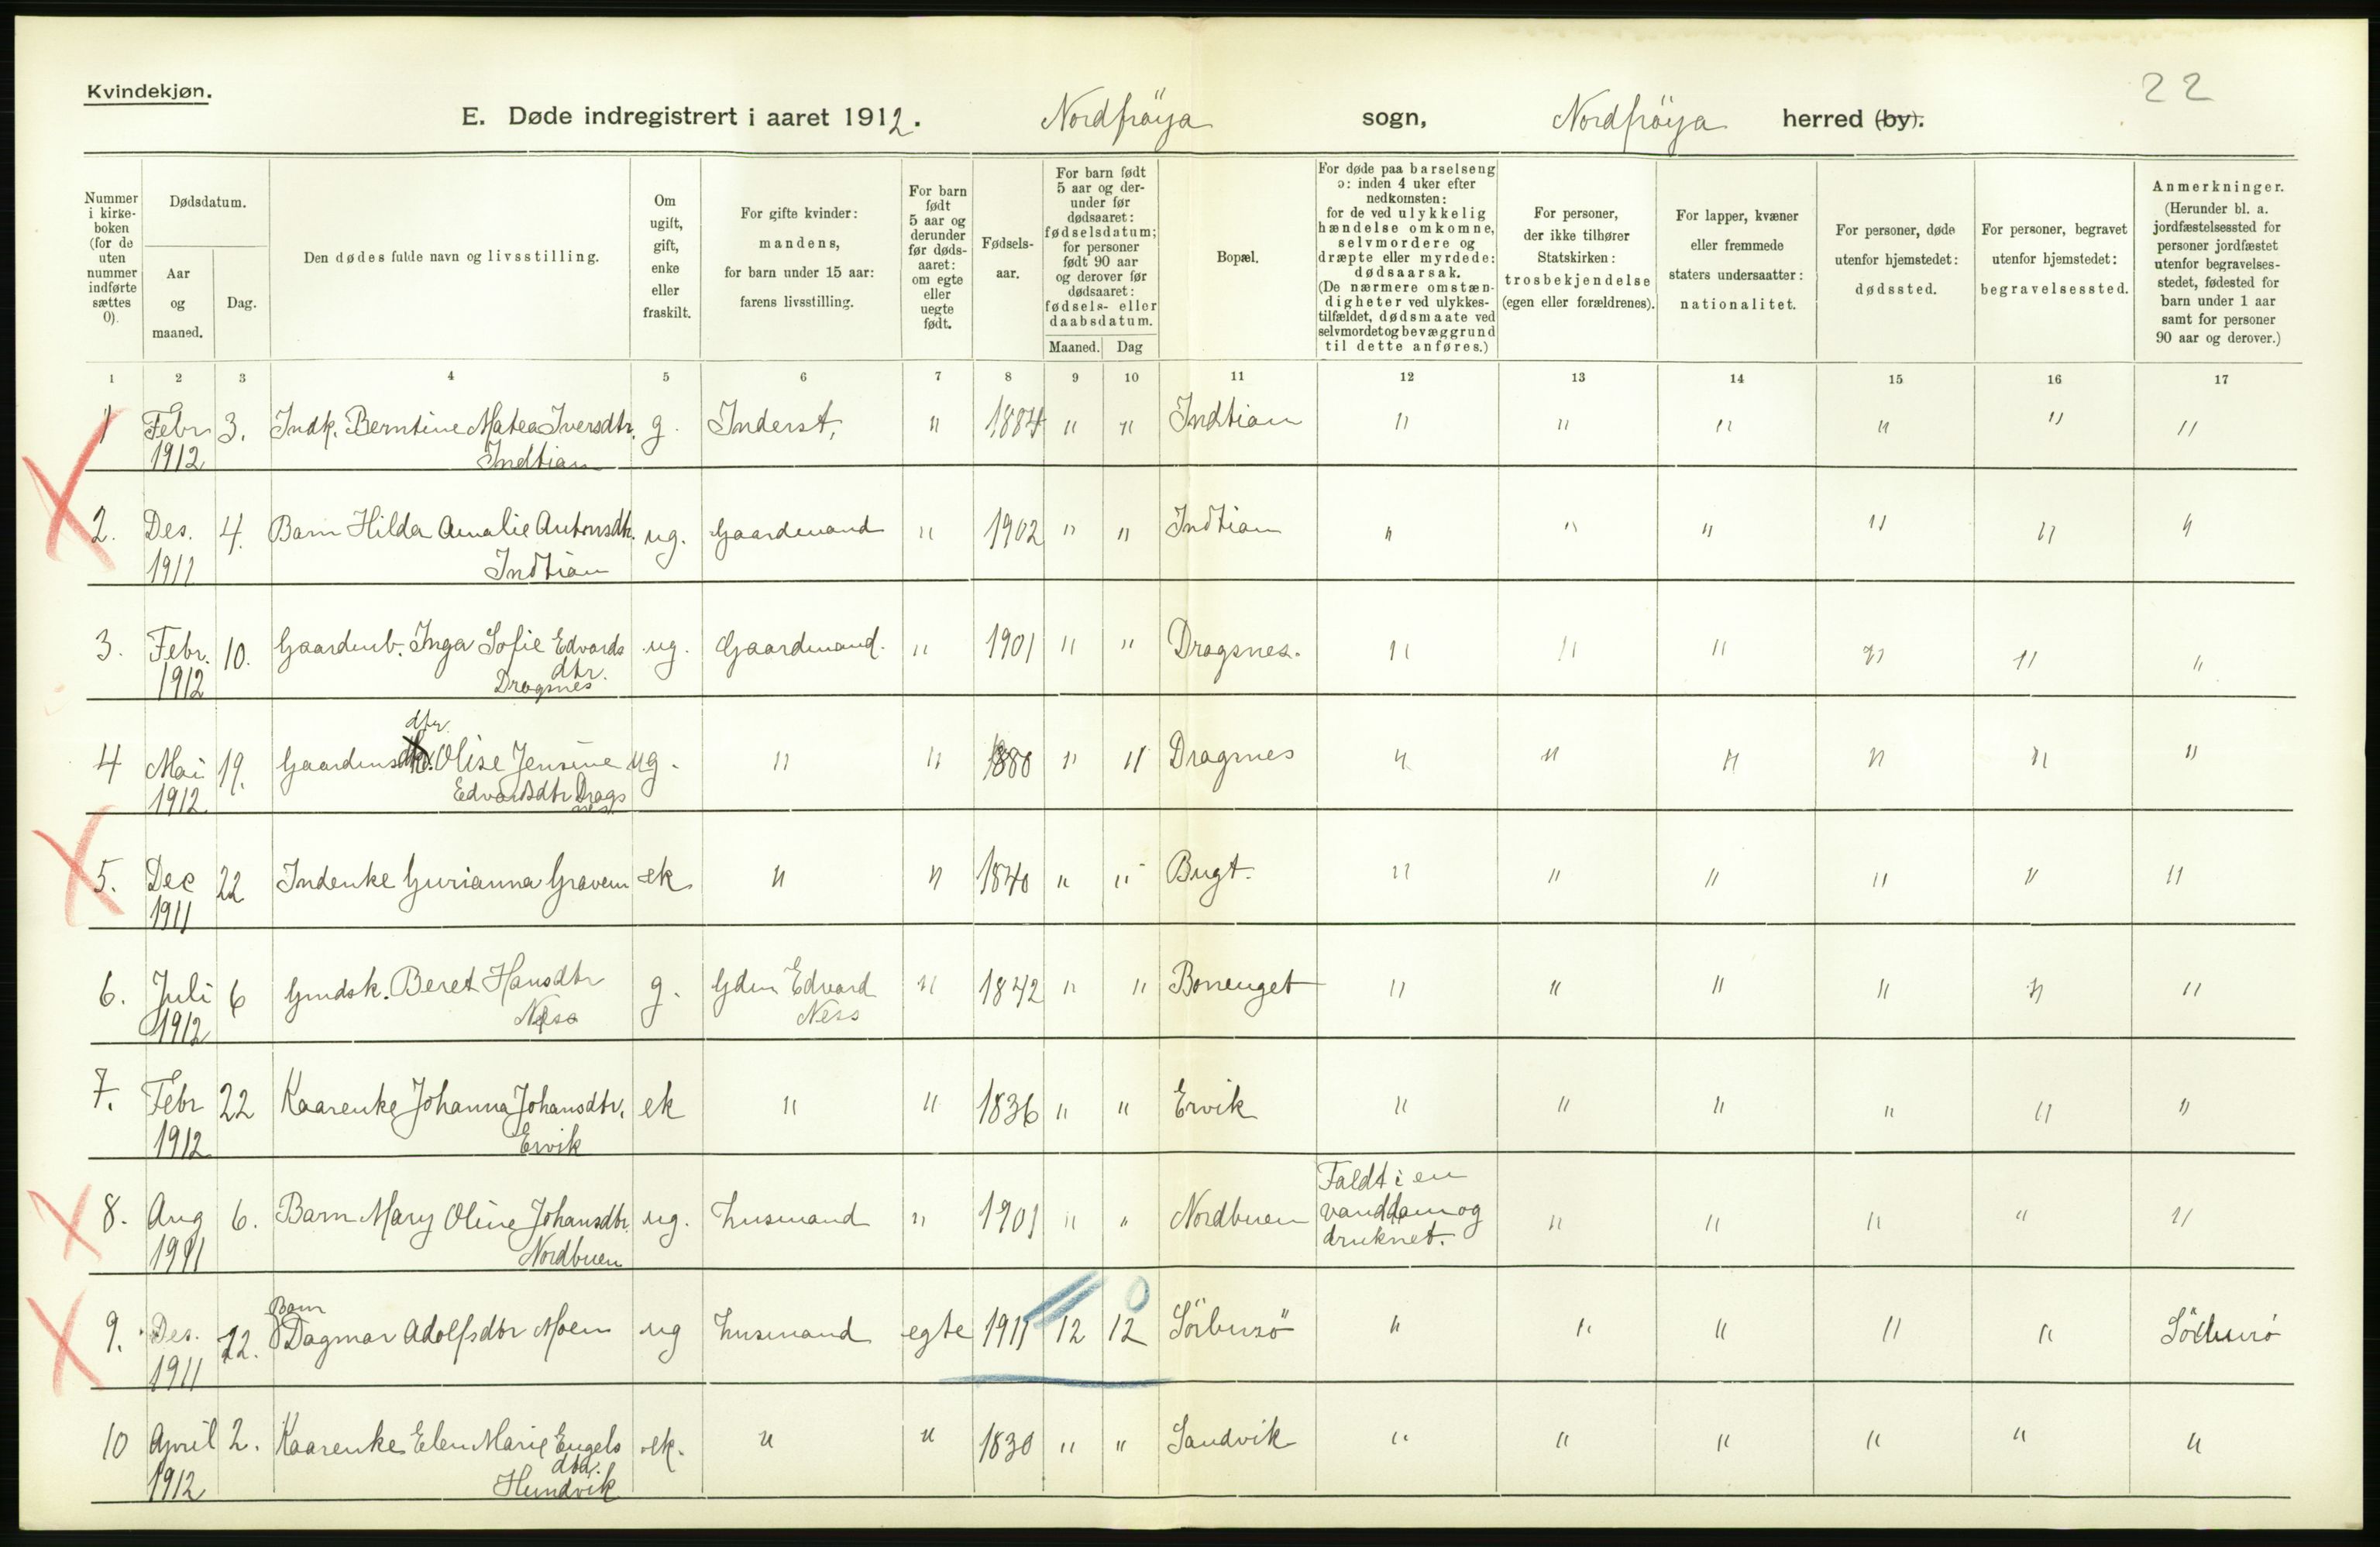 Kvindekjøn.
22
E. Døde indregistrert i aaret 1912. Nordfröya sogn, Nordfröya herred (by).
Nummer i kirke- boken (for de uten nummer indførte sættes 0).
Dødsdatum.
Aar og maaned.
Dag.
Den dødes fulde navn og livsstilling.
Om ugift, gift, enke eller fraskilt.
For gifte kvinder: mandens, for barn under 15 aar: farens livsstilling.
For barn født 5 aar og derunder før døds- aaret: om egte eller uegte født.
Fødsels- aar.
For barn født 5 aar og der- under før dødsaaret: fødselsdatum; for personer født 90 aar og derover før dødsaaret: fødsels- eller daabsdatum.
Maaned. Dag
Bopæl.
For døde paa barselseng ɔ: inden 4 uker efter nedkomsten: for de ved ulykkelig hændelse omkomne, selvmordere og dræpte eller myrdede: dødsaarsak. (De nærmere omstæn- digheter ved ulykkes- tilfældet, dødsmaate ved selvmordet og bevæggrund til dette anføres.)
For personer, der ikke tilhører Statskirken: trosbekjendelse (egen eller forældrenes).
For lapper, kvæner eller fremmede staters undersaatter: nationalitet.
For personer, døde utenfor hjemstedet: dødssted.
For personer, begravet utenfor hjemstedet: begravelsessted.
Anmerkninger. (Herunder bl. a. jordfæstelsessted for personer jordfæstet utenfor begravelses- stedet, fødested for barn under 1 aar samt for personer 90 aar og derover.)
1 2 3 4 5 6 7 8 9 10 11 12 13 14 15 16 17
1 Febr 3. Indk. Berntine Matea Iversdtr. g. Inderst, " 1884 " " Indtian " " " " " "
1912 Indtian
2. Des. 4. Barn Hilda Amalie Antonsdtr. ug. Gaardmand " 1902 " " Indtian " " " " " "
1911 Indtian
3. Febr. 10. Gaardmb. Inga Sofie Edvards ug. Gaardmand. " 1901 " " Dragsnes. " " " " " "
1912 dtr. Dragsnes
dtr.
4 Mai 19. Gaardms Olise Jensine ug. " " 1880 " " Dragsnes " " " " " "
1912 Edvardsdtr Drags
nes.
5. Dec 22 Indenke Gurianna Gravem ek " " 1840 " " Bugt. " " " " " "
1911
6. Juli 6 Gmdsk. Beret Hansdtr g. Gdm Edvard " 1842 " " Bonenget " " " " " "
1912 Ness Ness
7. Febr 22 Kaarenke Johanna Johansdtr. ek " " 1836 " " Ervik " " " " " "
1912 Ervik
8. Aug 6. Barn Mary Oline Johansdtr. ug. husmand " 1901 " " Nordbuen Faldt i en vanddam og druknet. " " " " "
1911 Nordbuen
Barn
9. Des. 22. Dagmar Adolfsdtr Moen ug husmand egte 1911 12 12 Sörbursö " " " " " Sörbursö
1911
0
10 April 2. Kaarenke Elen Marie Engels ek. " " 1830 " " Sandvik " " " " " "
1912 dtr. Hundvik